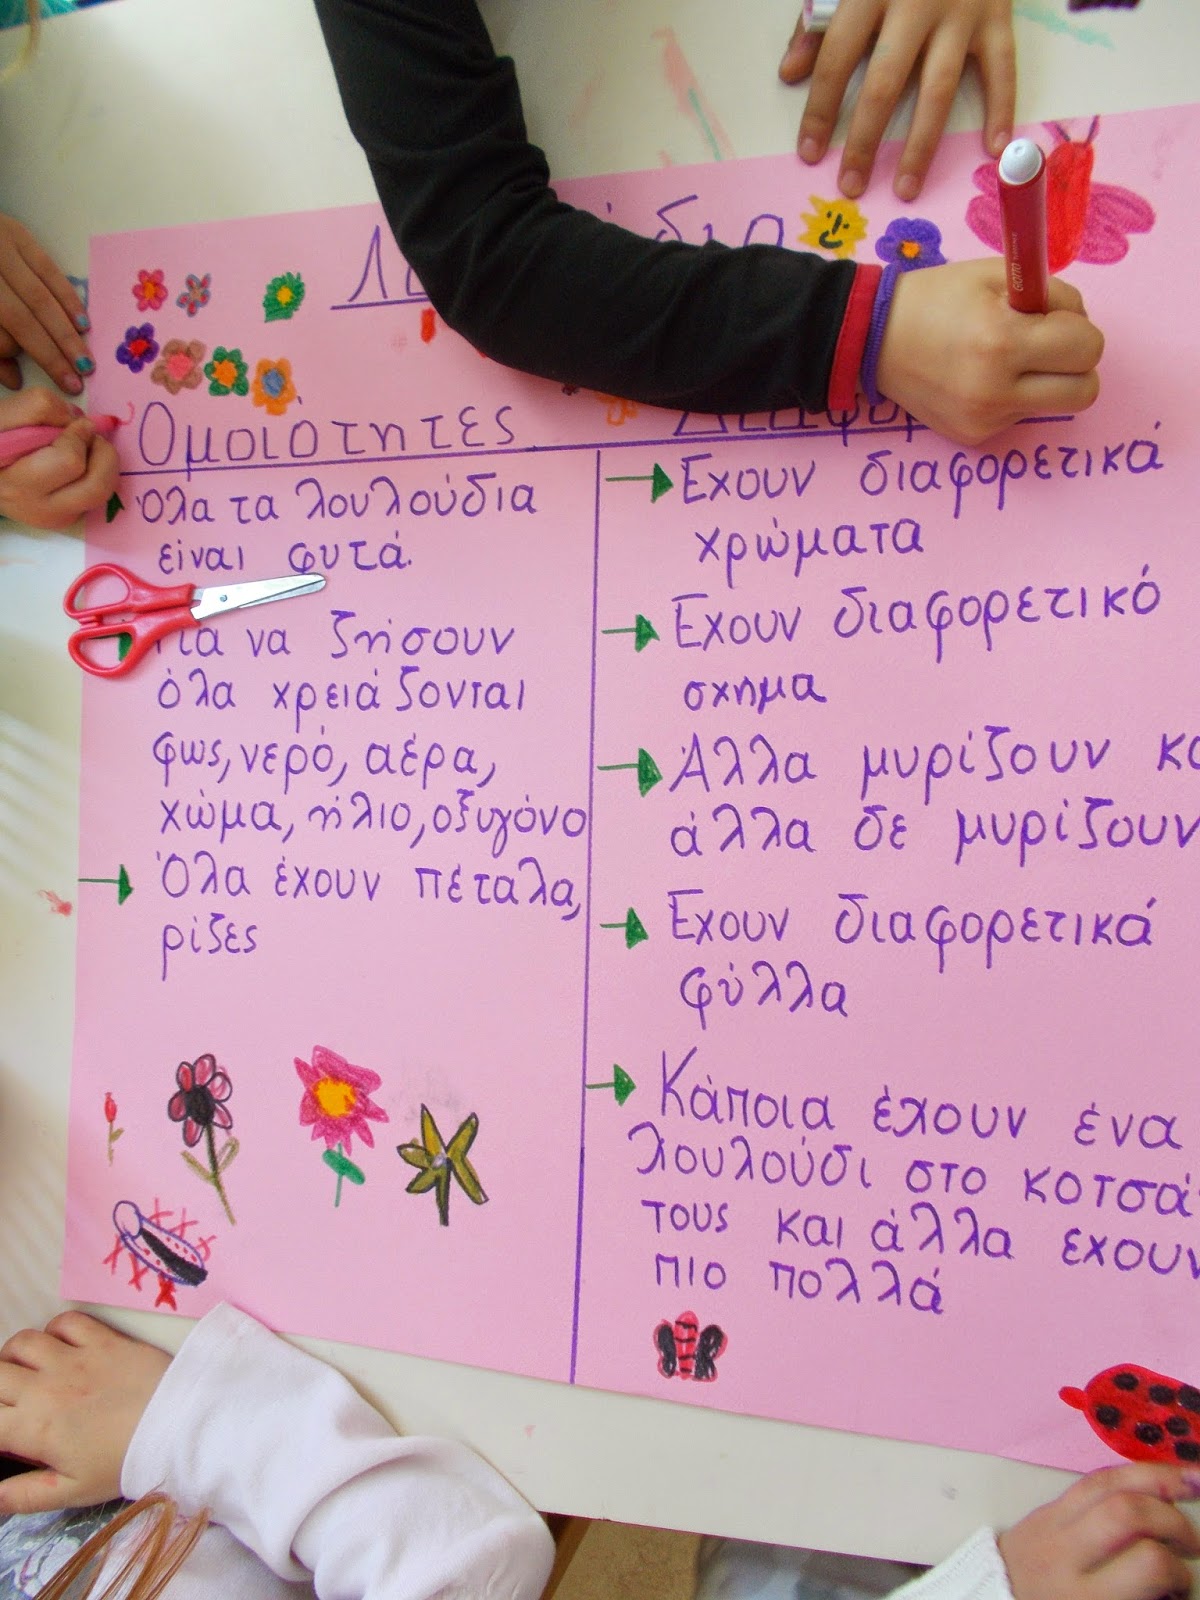 Ομοιότητες
Όλα τα λουλούδια
είναι φυτά.
Για να ζήσουν
όλα χρειάζονται
φως, νερό, αέρα,
χώμα, ήλιο, οξυγόνο
Όλα έχουν πέταλα,
ρίζες
Εχουν διαφορετικά
χρώματα
Εχουν διαφορετικό
σχημα
Άλλα μυρίζουν
άλλα δε μυρίζουν
Εχουν διαφορετικά
φύλλα
Κάποια έχουν ένα
λουλούδι στο
τους και άλλα εχουν
πιο πολλά
GIOTTO